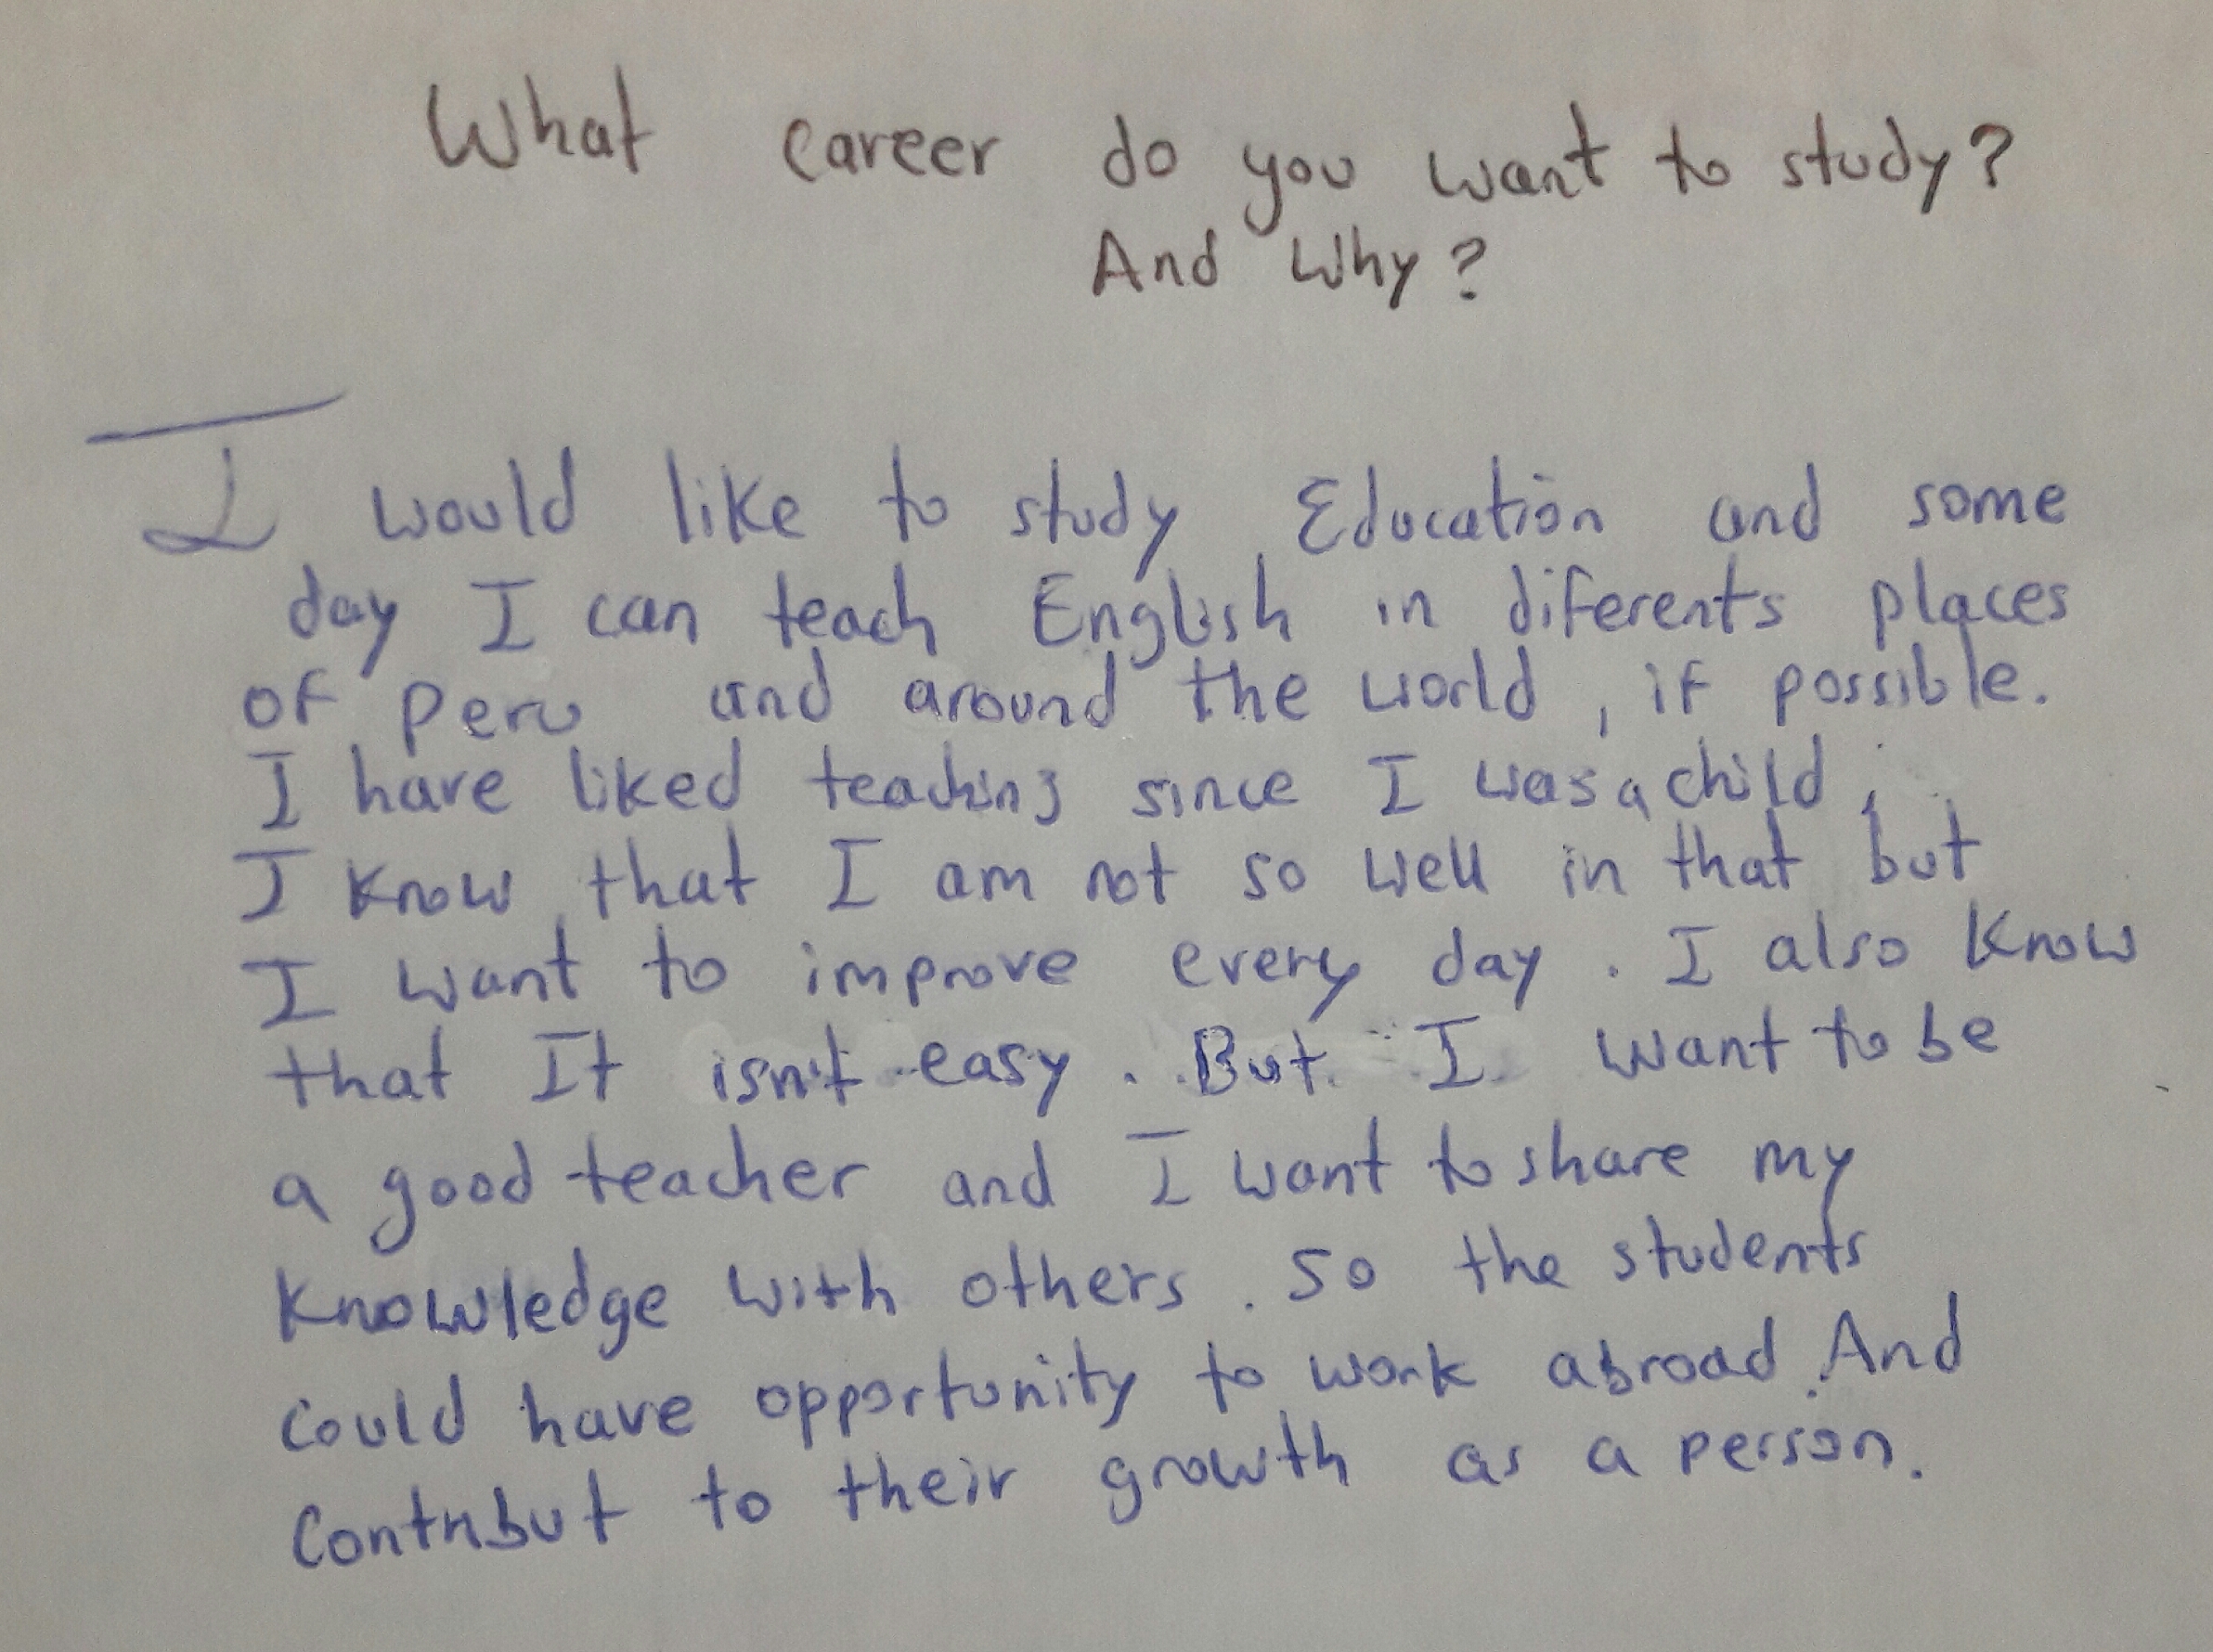 What career do you want to study?
And Why?
I would like to study Education and some
day I can teach English in diferents places
of peru and around the world, if possible.
I have liked teaching since I was a child,
I know that I am not so well in that but
I want to improve every day. I also know
that It isn't easy. But I want to be
a good teacher and I want to share my
knowledge with others. So the students
could have opportunity to work abroad. And
contribut to their growth as a person.